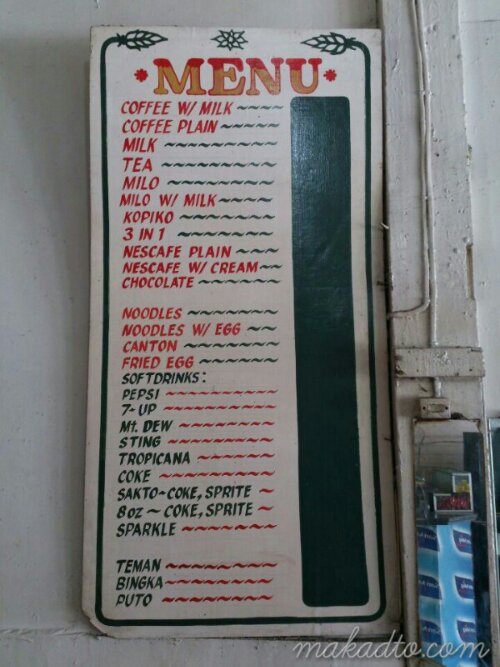 MENU
COFFEE W/ MILK
COFFEE PLAIN
MILK
TEA
MILO
MILO W/ MILK
KOPIKO
3 IN 1
NESCAFE PLAIN
NESCAFE W/ CREAM
CHOCOLATE
NOODLES
NOODLES W/ EGG
CANTON
FRIED EGG
SOFTDRINKS:
PEPSI
7-UP
Mt. DEW
STING
TROPICANA
COKE
SAKTO-COKE, SPRITE
8oz ~ COKE, SPRITE
SPARKLE
TEMAN
BINGKA
PUTO
makadto.com